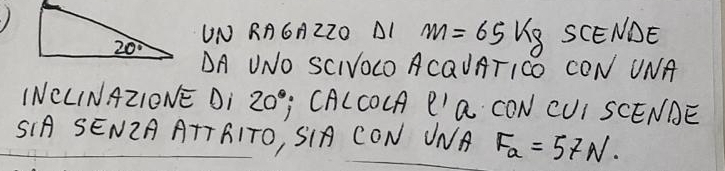 20°
UN RAGAZZO DI m = 65 Kg SCENDE
DA UNO SCIVOLO ACQUATICO CON UNA
INCLINAZIONE DI 20°; CALCOLA l'a CON CUI SCENDE
SIA SENZA ATTRITO, SIA CON UNA Fa = 57N.